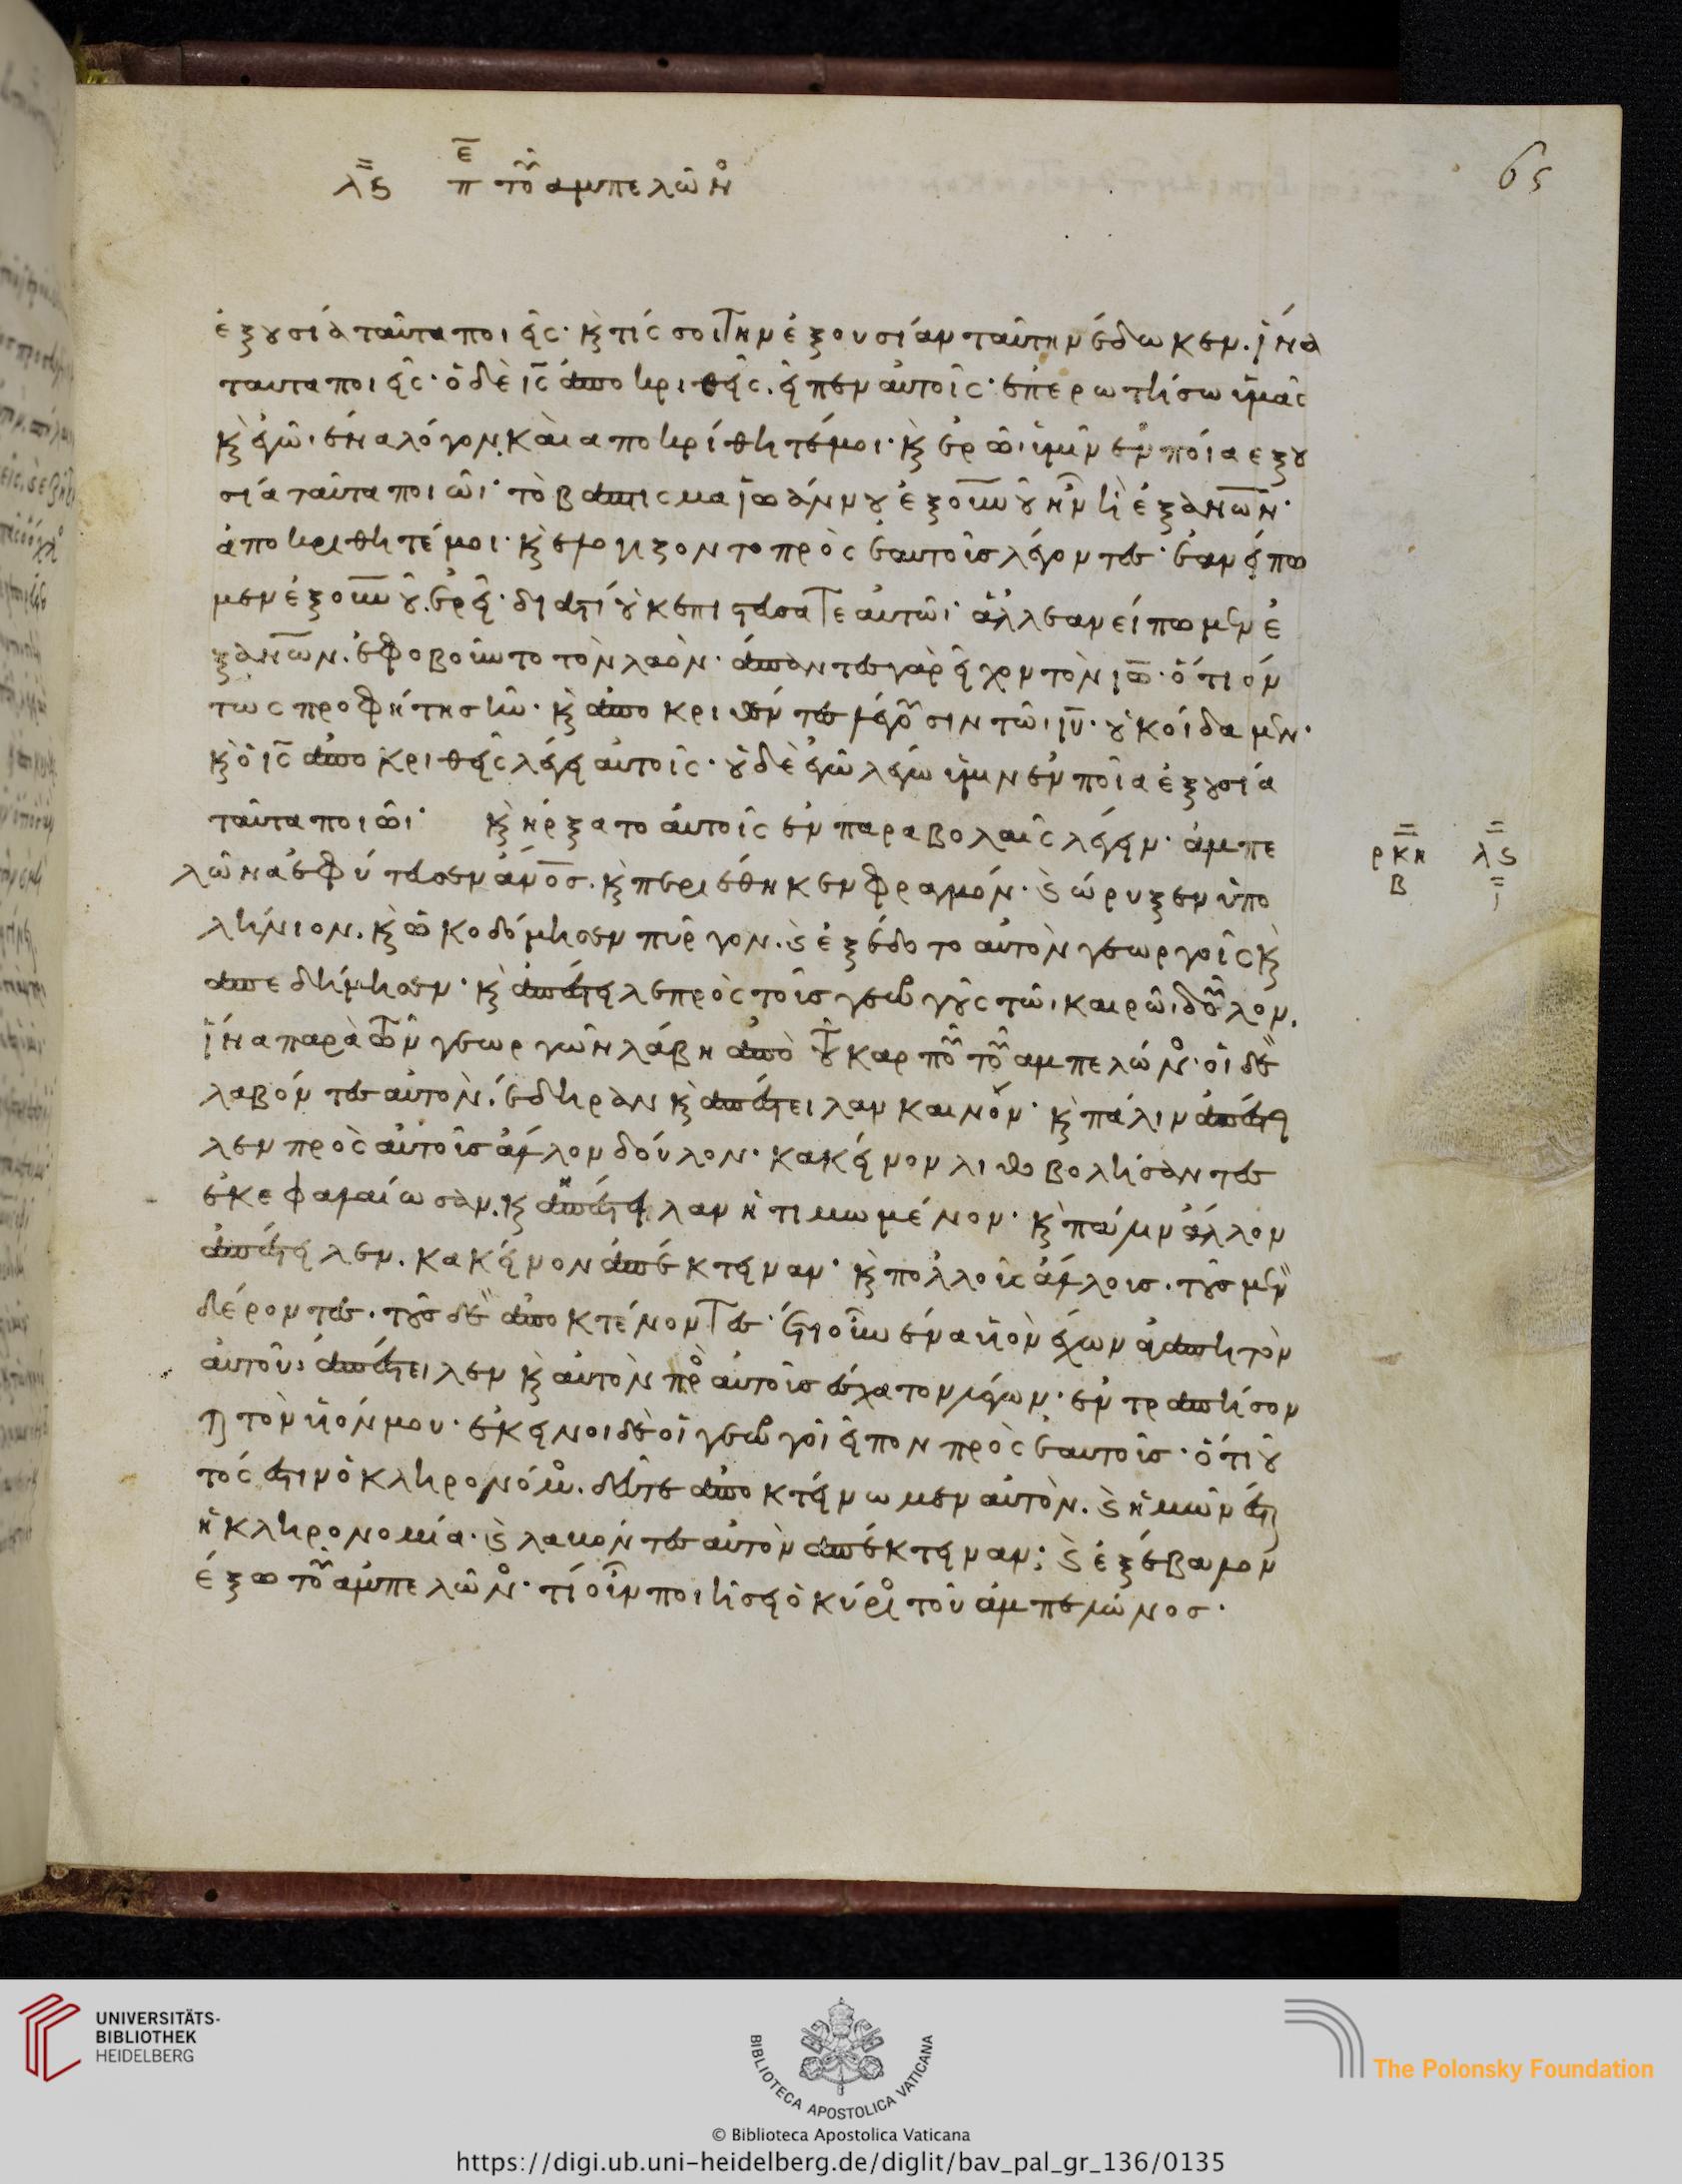 λς πε τοῦ αμπελῶνο
65
ἐξουσία ταῦτα ποιεῖς· κ τίς σοι τὴν ἐξουσίαν ταῦτην έδωκεν. ἵνα
ταυτα ποιεῖς· ὁ δὲ ις ἀποκριθεὶς. εἶπεν αὐτοῖς· ἐπερωτήσω ὑμᾶς
κ ἐγῶ. ἕνα λόγον. και αποκρίθητέ μοι. κ ἐρῶ ὑμῖν ἐν ποία εξου
σία ταῦτα ποιῶι· τὸ βαπτισμα ϊωάννου ἐξ ουνου ἦν ἢ ἐξ ανων·
ἀποκριθητέ μοι. κ ελογιζοντο πρὸς ἑαυτοῖς λέγοντες· ἐαν είπω
μεν ἐξ ουνου. ἐρεῖ· διατί οὐκ επιστεύσατε αυτῶι· ἀλλ εαν είπωμεν ἐ
ξ ανων. ἐφοβοῦντο τὸν λαὸν· ἁπαντες γὰρ εἶχον τὸν ιω· ὅτι όν
τως προφήτης ἦν. κ ἀποκριθέντες λέγουσιν τῶι ιυ. οὐκ οίδαμεν.
κ ὁ ις ἀποκριθεὶς λέγει αυτοῖς· οὐδὲ ἐγὼ λέγω ὑμιν ἐν ποῖα ἐξουσία
ταῦτα ποιῶι· κ ήρξατο αυτοῖς ἐν παραβολαῖς λέγειν. ἀμπε
λῶνα ἐφύτευσεν ἀνος. κ περιέθηκεν φραγμόν. κ ώρυξεν ὑπο
λήνιον. κ ὠκοδόμησεν πύργον. κ ἐξέδοτο αὐτὸν γεωργοῖς κ
απεδήμησεν. κ ἀπέστειλε πρὸς τοῖς γεωργοὺς τῶι καιρῶι δοῦλον.
ἵνα παρὰ τῶν γεωργῶν λάβη ἀπὸ τοῦ καρποῦ τοῦ αμπελώνο· οἱ δὲ
λαβόντες αὐτὸν. έδηραν κ απέστειλαν καινόν· κ πάλιν ἀπέστει
λεν πρὸς αὐτοῖς ἀλλον δούλον. κακείνον λιθοβολήσαντες
ἐκεφαλαίωσαν. κ ἀπέστειλαν ἠτιμωμένον. κ πάλιν ἄλλον
ἀπέστειλεν. κακείνον ἀπέκτειναν· κ πολλοὶς ἀλλοις. τοὺς μὲν
δέροντες. τοὺς δὲ ἀποκτένοντες· έτι οὖν ένα υἱὸν έχων ἀγαπητὸν
αὐτοῦ. ἀπέστειλεν κ αὐτὸν προ αὐτοῖς έσχατον λέγων. ἐντραπήσον
ται τὸν υἱόν μου· ἐκεινοι δὲ οἱ γεωργοὶ εἶπον πρὸς ἑαυτοῖς. ὅτι οὗ
τός ἐστιν ὁ κληρονόμο. δεῦτε ἀποκτείνωμεν αὐτὸν. κ ἡμῶν ἔσται
ἡ κληρονομία. κ λαβόντες αὐτὸν ἀπέκτειναν· κ ἐξέβαλον
έξω τοῦ ἀμπελῶνο· τί οὖν ποιήσει ὁ κύριο τοῦ ἀμπελώνος.
ρκη λς
β ι
UNIVERSITÄTS-
BIBLIOTHEK
HEIDELBERG
BIBLIOTECA APOSTOLICA VATICANA
The Polonsky Foundation
© Biblioteca Apostolica Vaticana
https://digi.ub.uni-heidelberg.de/diglit/bav_pal_gr_136/0135